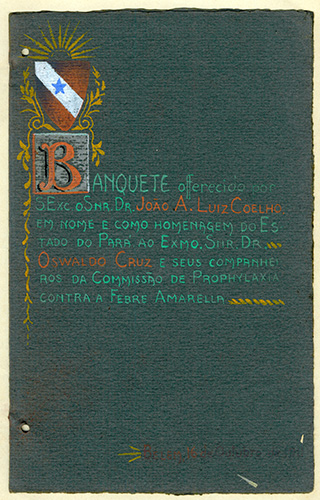 BANQUETE offerecido por
S. Exc. o Snr. Dr. João A. Luiz Coelho,
em nome e como homenagem do Es
tado do Pará ao Exmo. Snr. Dr.
Oswaldo Cruz e seus companhei
ros da Commissão de Prophylaxia
contra a Febre Amarella